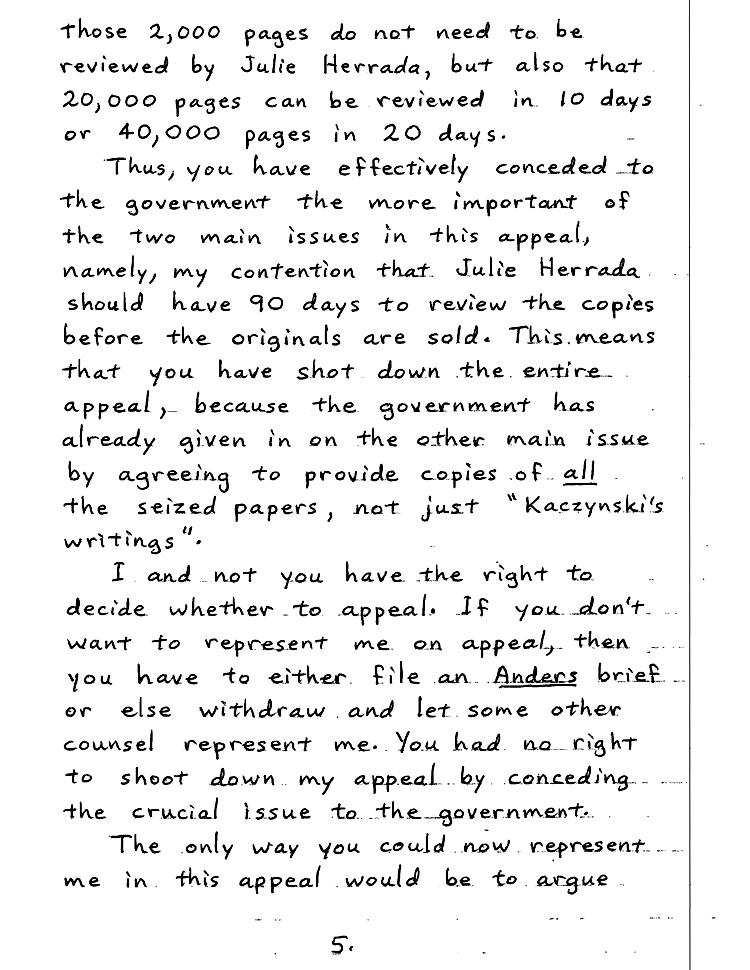 those 2,000 pages do not need to be
reviewed by Julie Herrada, but also that
20,000 pages can be reviewed in 10 days
or 40,000 pages in 20 days.
Thus, you have effectively conceded to
the government the more important of
the two main issues in this appeal,
namely, my contention that Julie Herrada
should have 90 days to review the copies
before the originals are sold. This means
that you have shot down the entire
appeal, because the government has
already given in on the other main issue
by agreeing to provide copies of all
the seized papers, not just "Kaczynski's
writings".
I and not you have the right to
decide whether to appeal. If you don't
want to represent me on appeal, then
you have to either file an Anders brief
or else withdraw and let some other
counsel represent me. You had no right
to shoot down my appeal by conceding
the crucial issue to the government.
The only way you could now represent
me in this appeal would be to argue
5.